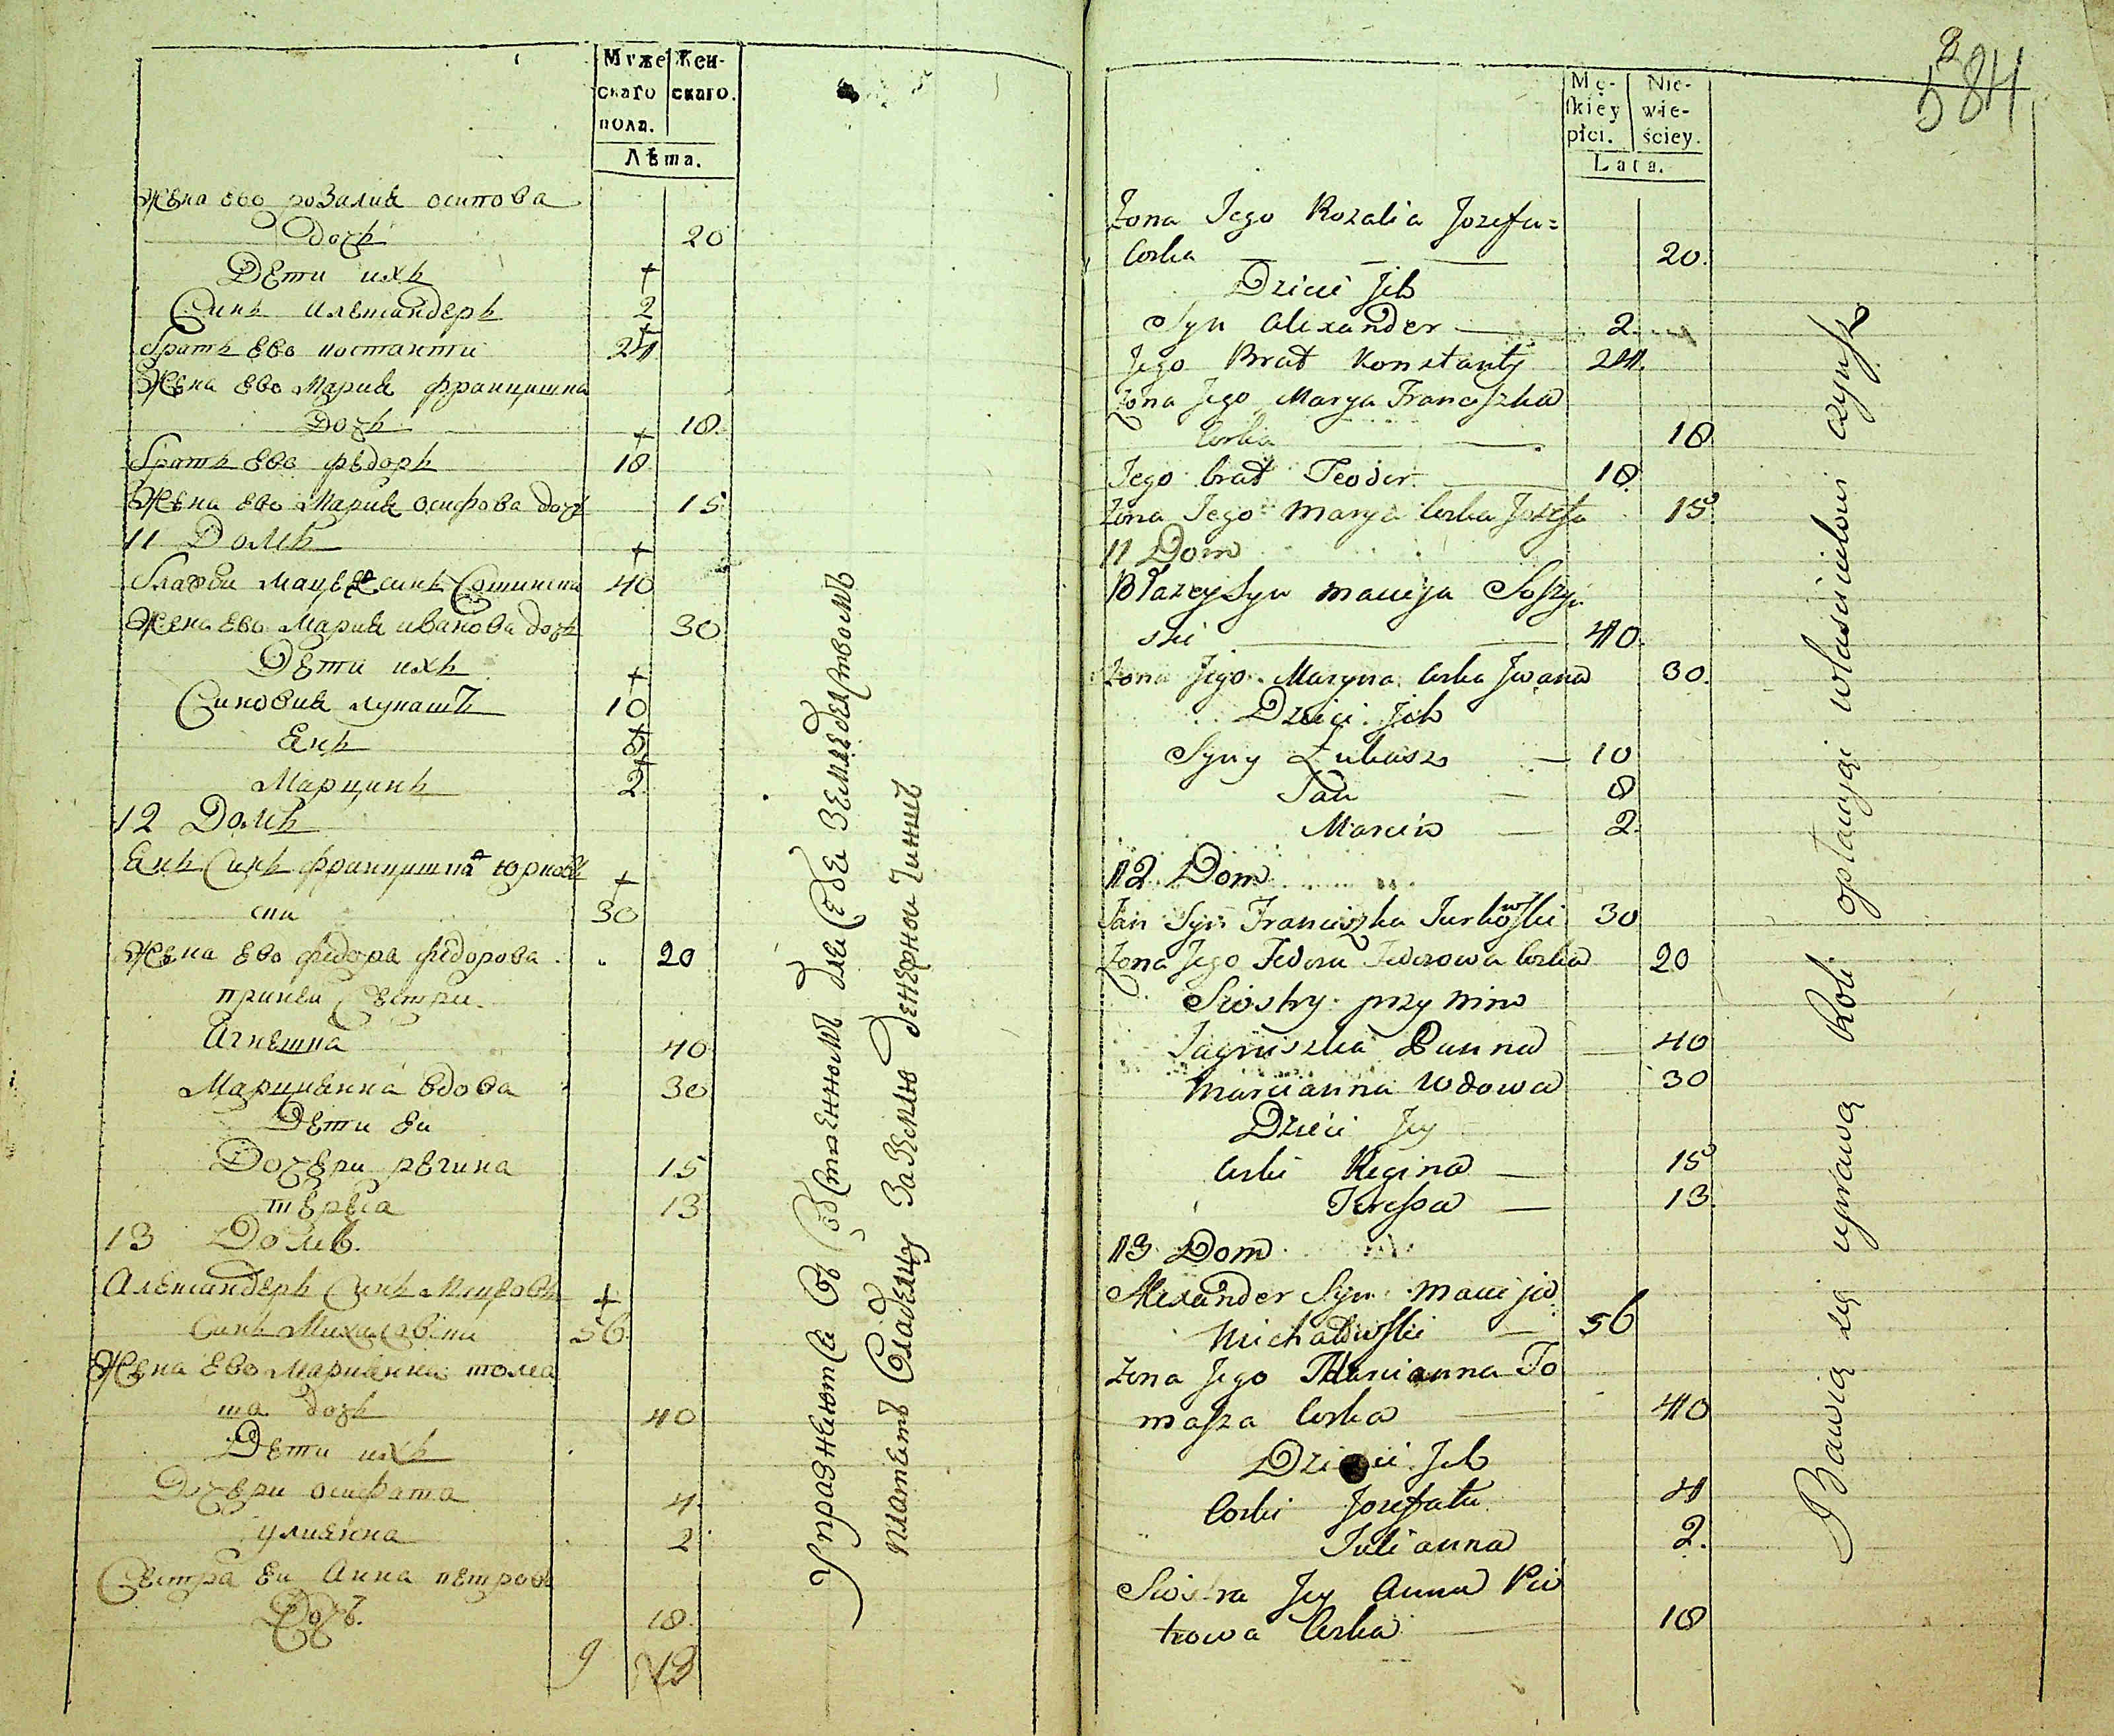 Муже Жен-
скаго скаго.
пола.
Лѣта.
Жена ево розалия осипова
дочь 20
Дети ихъ
Синъ александеръ 2
братъ ево костанти 24
Жена ево Мария францишка
дочь 18.
братъ ево федоръ 18
Жена ево Мария осифова дочь 15
11 Домъ
40
Жена ево Мария иванова дочь 30
Дети ихъ
Синовия лукашъ 10
Янъ 8
Марцинъ 2
12 Домъ
Янъ Синъ францишка юрков
ски 30
Жена ево федора федорова 20
при нем Сестри
Агнешка 40
Марцианна вдова 30
Дети еи
Дочери регина 15
тереса 13
13 Домъ.
Александеръ Синъ
56
Жена ево Марцианна тома
ша дочь 40
Дети ихъ
Дочери осифата 4.
улианна 2
Сестра еи Анна петрова
Дочъ. 18.
9 13
Упражняются въ Собственномъ для Себя Земледелствомъ
платетъ Владелцу За Землю денежной Чиншъ
584
Mę- Nie-
skiey wie-
płci. ściey.
Lata.
Żona Jego Rozalia Jozefa=
Corka 20.
Dzieci Jch
Syn Alexander 2.
Jego Brat Konstanty 24.
Żona Jego Marya Franciszka
Corka 18
Jego brat Teodor 18
Żona Jego Marya Corka Jozefa 15
11 Dom
Błazey Syn Macieja Soszyń
ski 40.
Żona Jego Maryna Corka Jwana 30.
Dzieci Jch
Syny Łukasz 10
Jan 8
Marcin 2.
12 Dom
Jan Syn Franciszka Jurkowski 30
Żona Jego Fedora Fedorowa Corka 20
Siostry przy nim
Jagniszka Panna 40
Marcianna Wdowa 30
Dzieci Jey
Corki Regina 15
Teressa 13.
13 Dom
Alexander Syn Macieja
Michałowski 56
Żona Jego Marcianna To
masza Corka 40
Dzieci Jch
Corki Jozefata 4
Julianna 2.
Siostra Jey Anna Pio
trowa Corka 18
Bawią się uprawą Roli opłacając właścicielowi czynsz